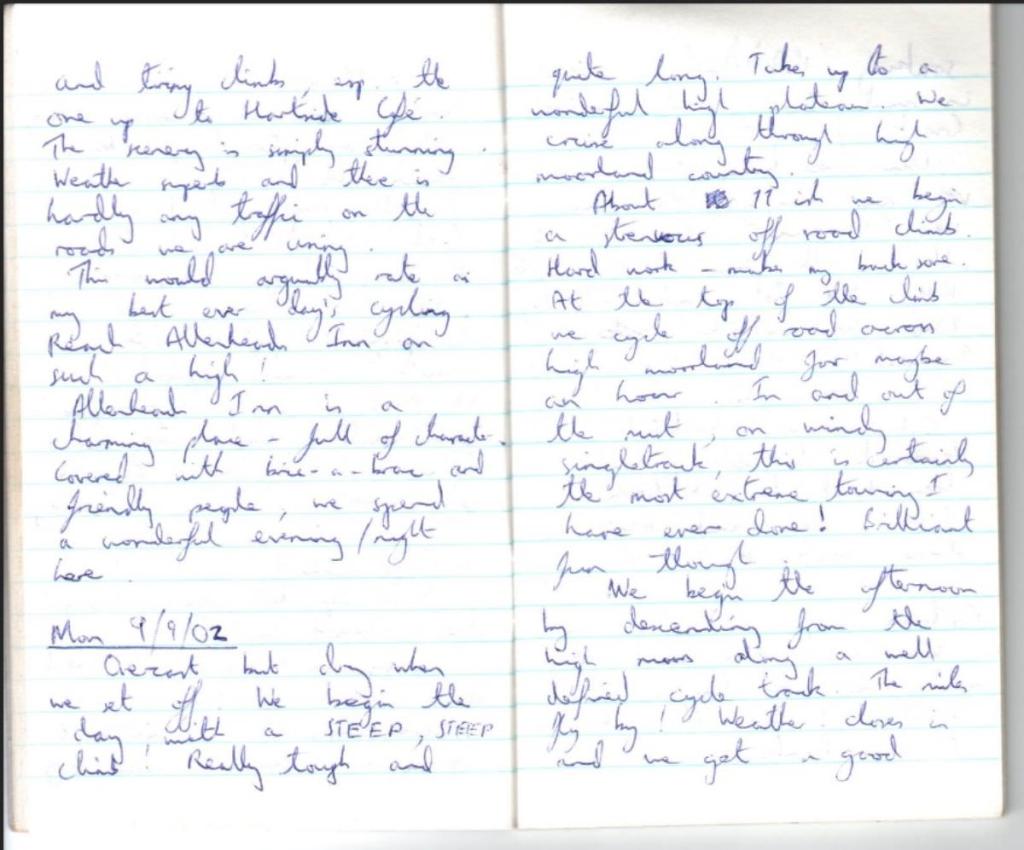 and tiring climbs, esp. the
one up to Hartside Café.
The scenery is simply stunning.
Weather superb and there is
hardly any traffic on the
roads we are using.
This would arguably rate as
my best ever day's cycling.
Reach Allenheads Inn on
such a high!
Allenheads Inn is a
charming place - full of character.
Covered with bric-a-brac and
friendly people, we spend
a wonderful evening/night
here.
Mon 9/9/02
Overcast but dry when
we set off. We begin the
day, with a STEEP, STEEP
climb! Really tough and
quite long. Takes up to a
wonderful high plateau. We
cruise along through high
moorland country.
About 11 ish we begin
a stenuous off road climb.
Hard work - makes my back sore.
At the top of the climb
we cycle off road across
high moorland for maybe
an hour. In and out of
the mist, on windy
singletrack, this is certainly
the most extreme touring I
have ever done! Brilliant
fun though.
We begin the afternoon
by descending from the
high moors along a well
defined cycle track. The miles
fly by! Weather closes in
and we get a good